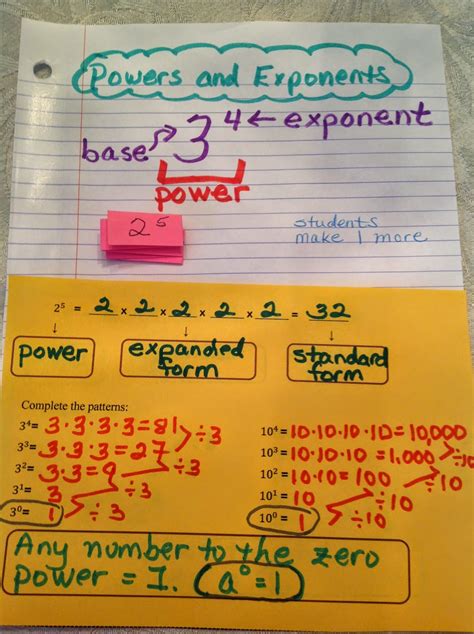 Powers and Exponents
base → 3⁴ ← exponent
power
2⁵
students
make 1 more
2⁵ = 2 × 2 × 2 × 2 × 2 = 32
↓ ↓ ↓
power expanded form standard form
Complete the patterns:
3⁴= 3·3·3·3=81
÷3
3³= 3·3·3=27
÷3
3²= 3·3=9
÷3
3¹= 3
÷3
3⁰= 1
10⁴ = 10·10·10·10=10,000
10³ = 10·10·10=1,000
÷10
10² = 10·10=100
÷10
10¹ = 10
÷10
10⁰ = 1
Any number to the zero
power = 1. a⁰=1